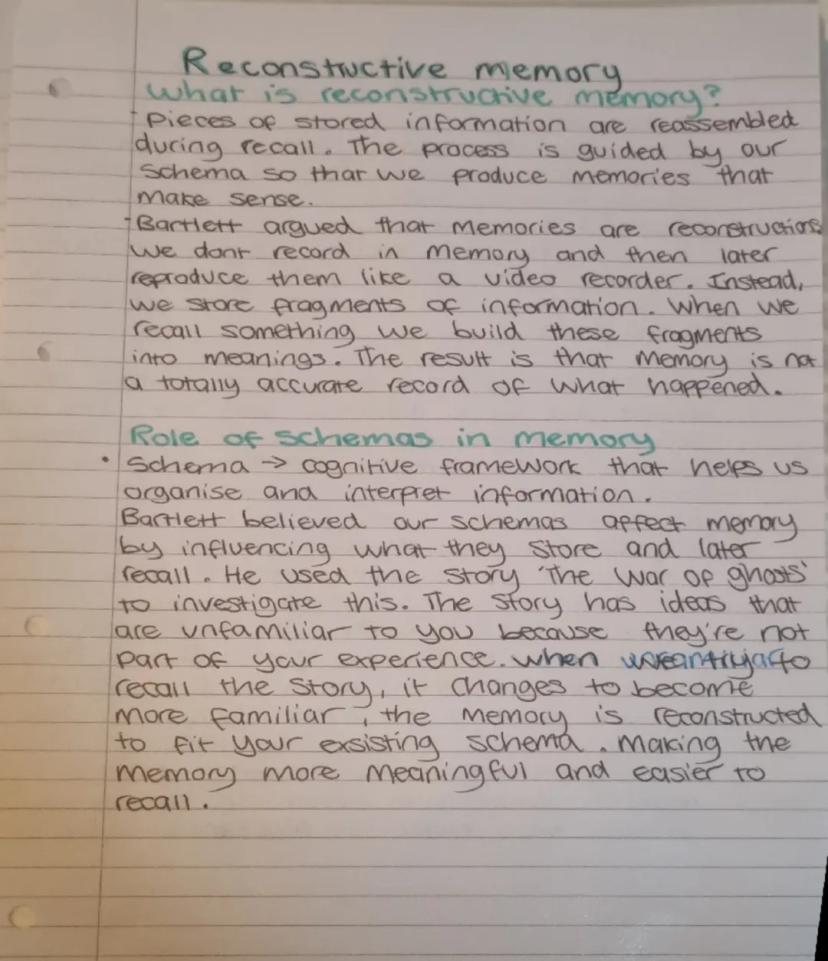 Reconstructive memory
What is reconstructive memory?
- Pieces of stored information are reassembled
during recall. The process is guided by our
schema so that we produce memories that
make sense.
- Bartlett argued that memories are reconstructions
we dont record in memory and then later
reproduce them like a video recorder. Instead,
we store fragments of information. When we
recall something we build these fragments
into meanings. The result is that memory is not
a totally accurate record of what happened.
Role of schemas in memory
• Schema → cognitive framework that helps us
organise and interpret information.
Bartlett believed our schemas affect memory
by influencing what they store and later
recall. He used the story 'The war of ghosts'
to investigate this. The story has ideas that
are unfamiliar to you because they're not
part of your experience. When to
recall the story, it changes to become
more familiar, the memory is reconstructed
to fit your exsisting schema. Making the
memory more meaningful and easier to
recall.